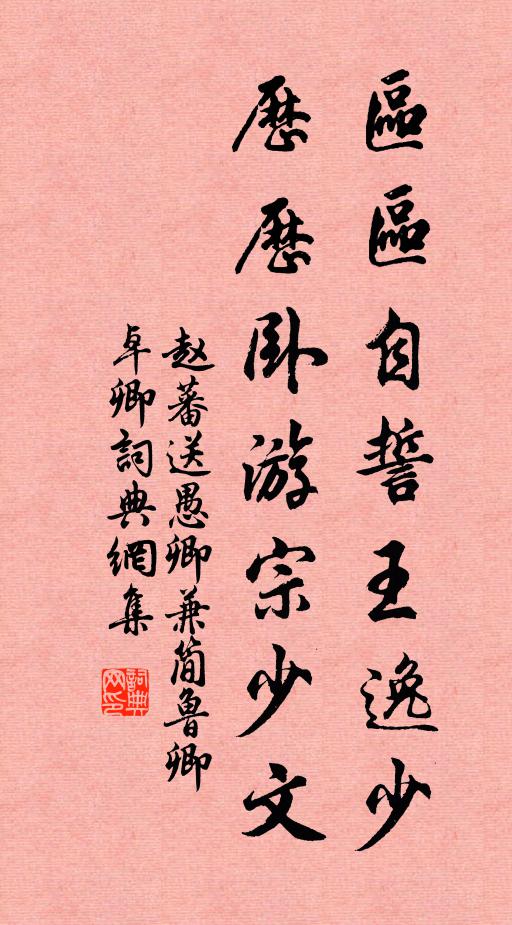 區區自誓王逸少
歷歷卧游宗少文
赵蕃送愚卿兼简鲁卿
卓卿詞典網集
詞典网印